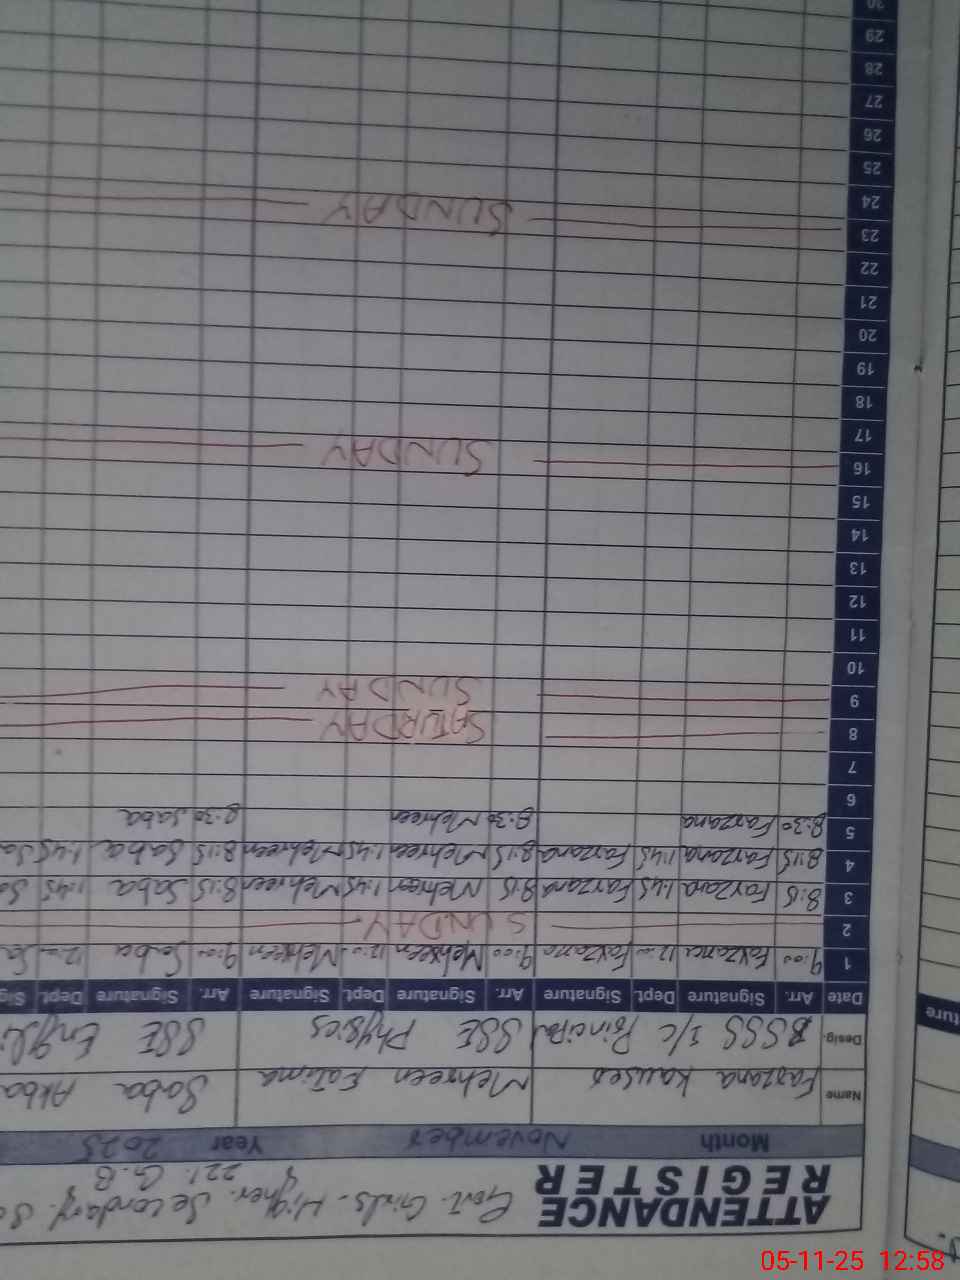 ATTENDANCE REGISTER Govt. Girls. Higher. Secondary.
221. G.B
Month November Year 2025
Name Farzana Kauser Mehreen Fatima Saba
Desig. SSS I/C Principal SSE Physics SSE
Date Arr. Signature Dept. Signature Arr. Signature Dept. Signature Arr. Signature Dept.
1 9:00 Farzana 12:00 Farzana 9:00 Mehreen 12:00 Mehreen 9:00 Saba 12:00
2 SUNDAY
3 8:15 Farzana 1:45 Farzana 8:15 Mehreen 1:45 Mehreen 8:15 Saba 1:45
4 8:15 Farzana 1:45 Farzana 8:15 Mehreen 1:45 Mehreen 8:15 Saba 1:45
5 8:30 Farzana 8:30 Mehreen 8:30 Saba
6
7
8 SATURDAY
9 SUNDAY
10
11
12
13
14
15
16 SUNDAY
17
18
19
20
21
22
23 SUNDAY
24
25
26
27
28
29
30
05-11-25 12:58